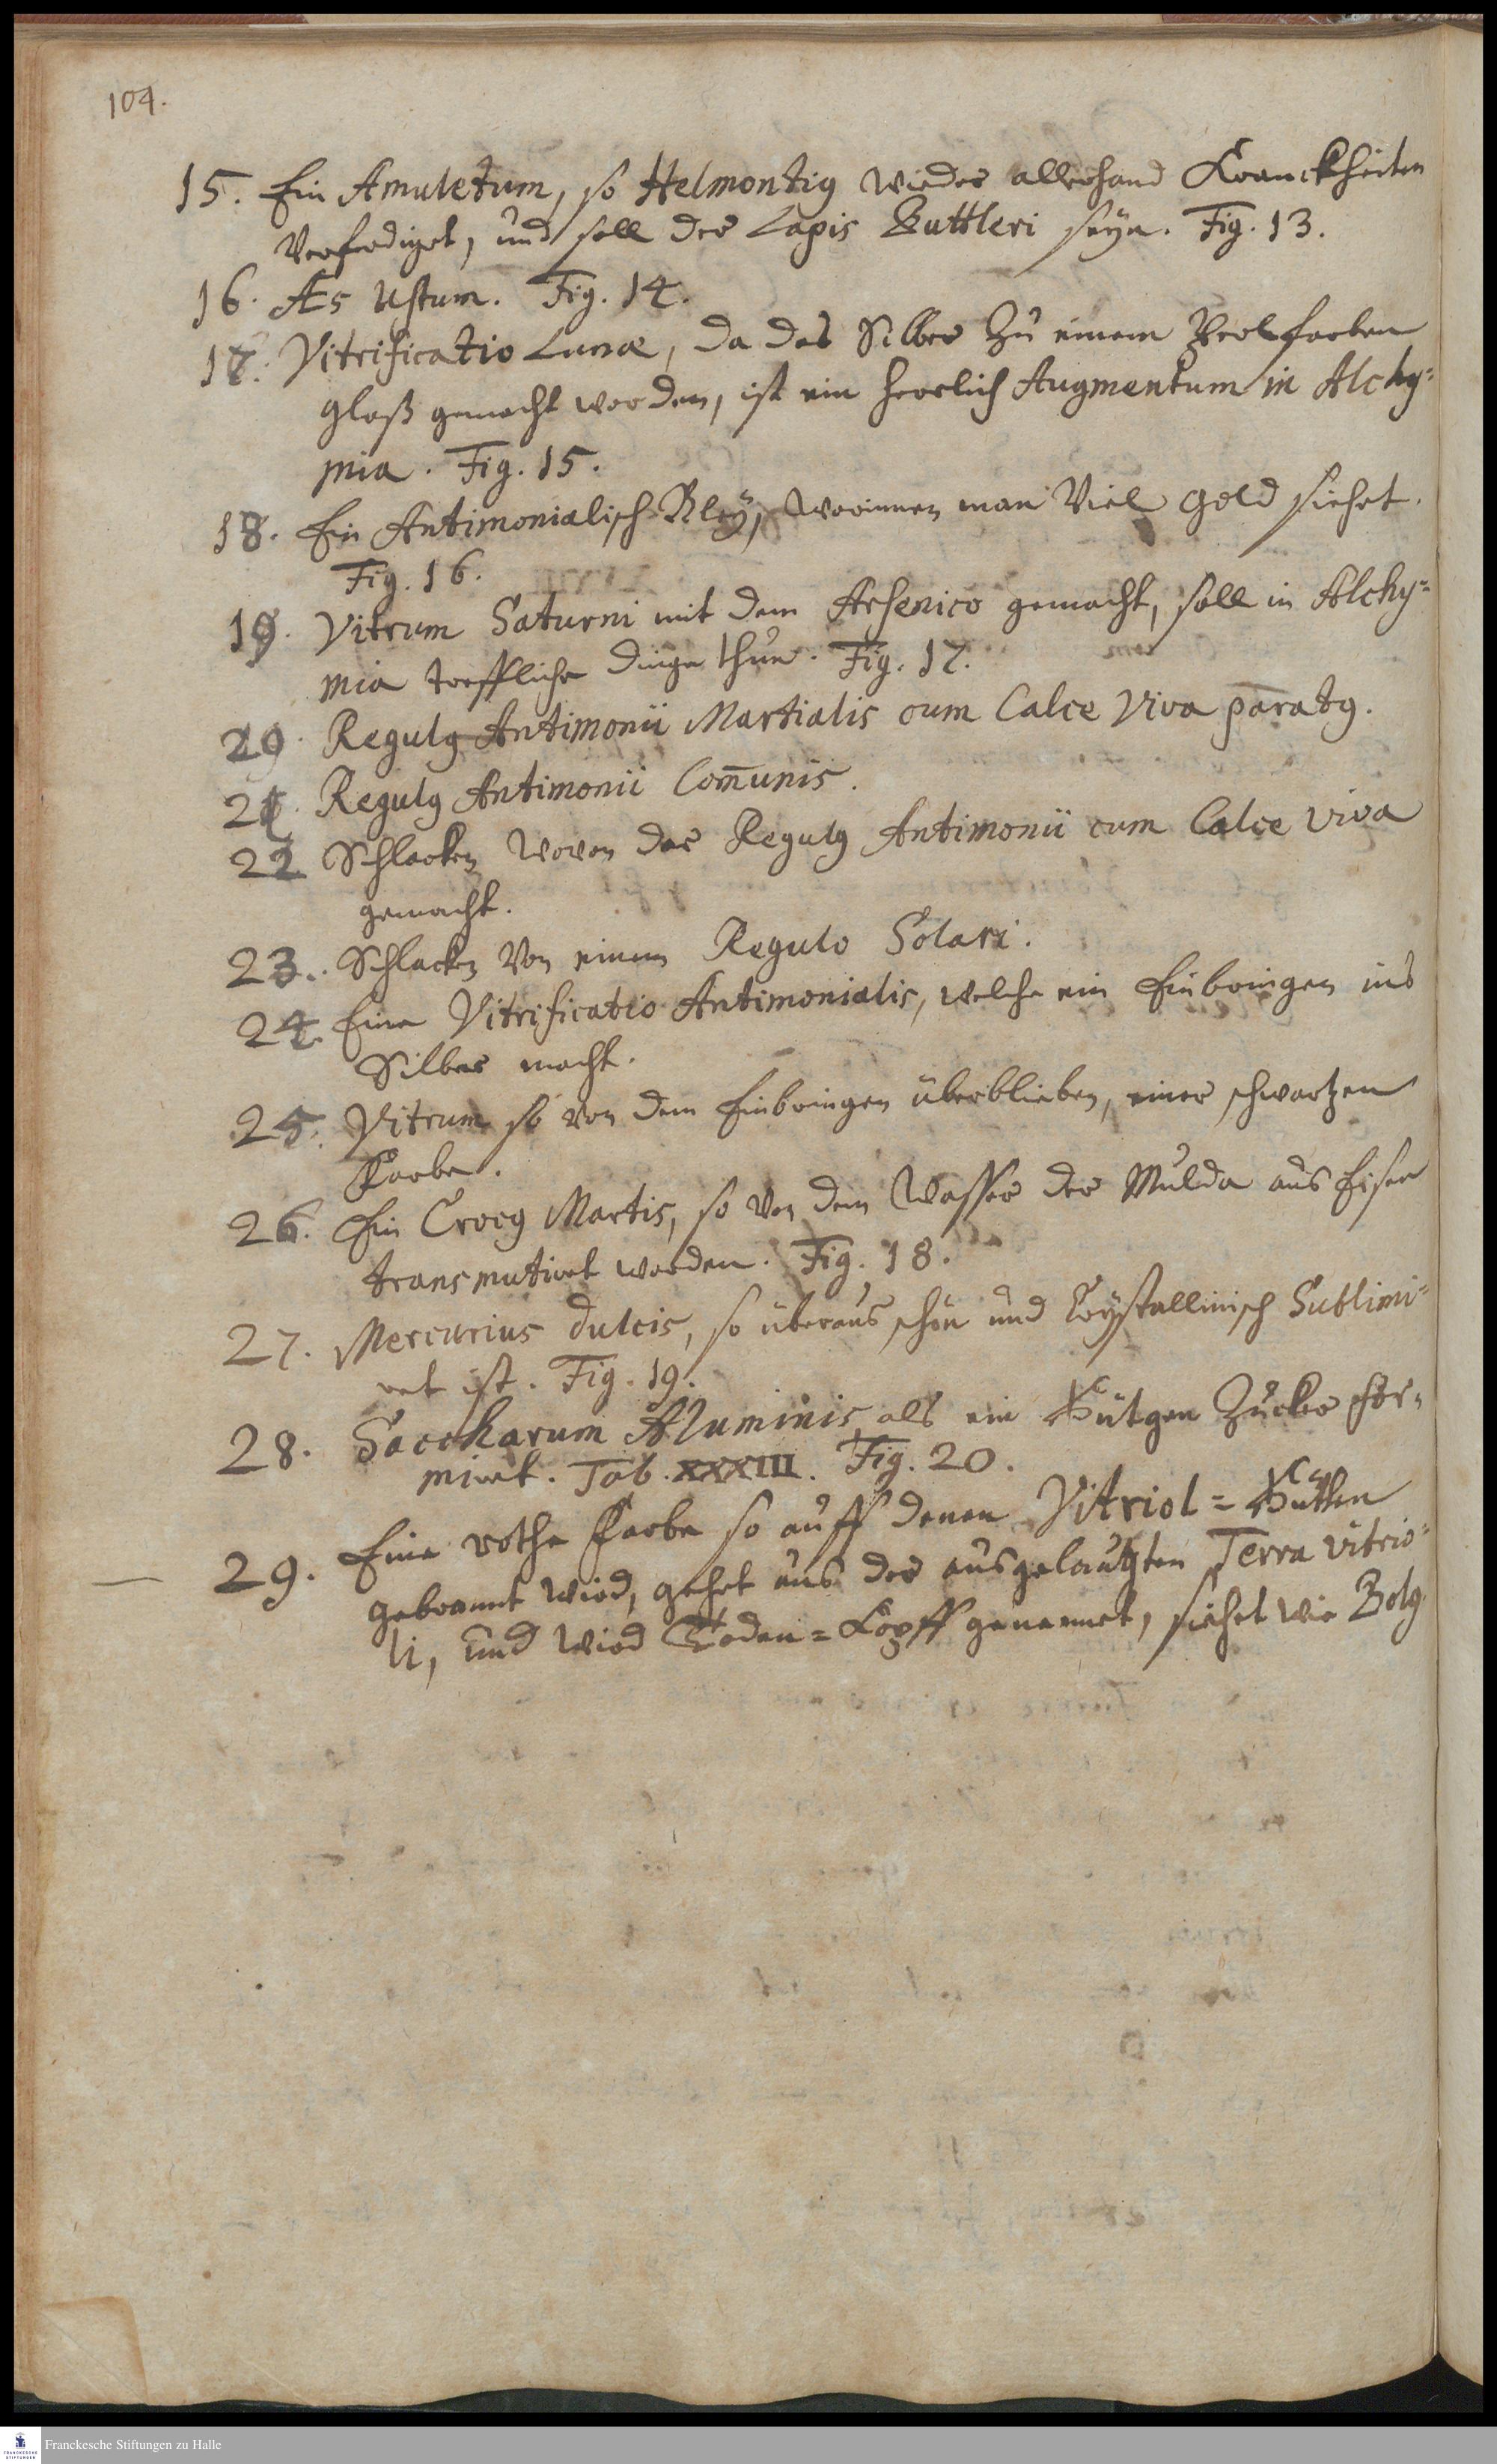 104.
15. Ein Amuletum, so Helmontig wieder allerhand Kranckheiten
Verferdiget, und soll der Lapis Buttleri seyn. Fig. 13.
16. Æs Ustum. Fig. 14.
17. Vitrificatio Lunæ, da das Silber zu einem Perlfarben
glaß gemacht worden, ist ein herrlich Augmentum in Alchy=
mia. Fig. 15.
18. Ein Antimonialisch Bleÿ, worinnen man Viel gold siehet.
Fig. 16.
19. Vitrum Saturni mit dem Arsenico gemacht, soll in Alchy=
mia treffliche dinge thun. Fig. 17.
20. Regulg Antimonii Martialis cum Calce Viva paratg.
21. Regulg Antimonii Com̄unis.
22 Schlacken wovon der Regulg Antimonii cum Calce viva
gemacht.
23. Schlacken Von einem Regulo Solari.
24. Eine Vitrificatio Antimonialis, welche ein Einbringen ins
Silber macht.
25. Vitrum so von dem Einbringen überblieben, einer schwartzen
Farbe.
26. Ein Crocg Martis, so von dem Wasser der Mulda aus Eisen
transmutiret worden. Fig. 18.
27. Mercurius dulcis, so überaus schön und Crystallinisch Sublimi=
ret ist. Fig. 19.
28. Saccharum Aluminis als ein Hütgen Zucker for=
miret. Tab. XXXIII. Fig. 20.
29. Eine rothe Farbe so auff denen Vitriol=Hütten
gebrannt wird, gehet aus der ausgelaugten Terra vitrio=
li, und wird Toden=Kopff genennet, siehet wie Bolg
Franckesche Stiftungen zu Halle